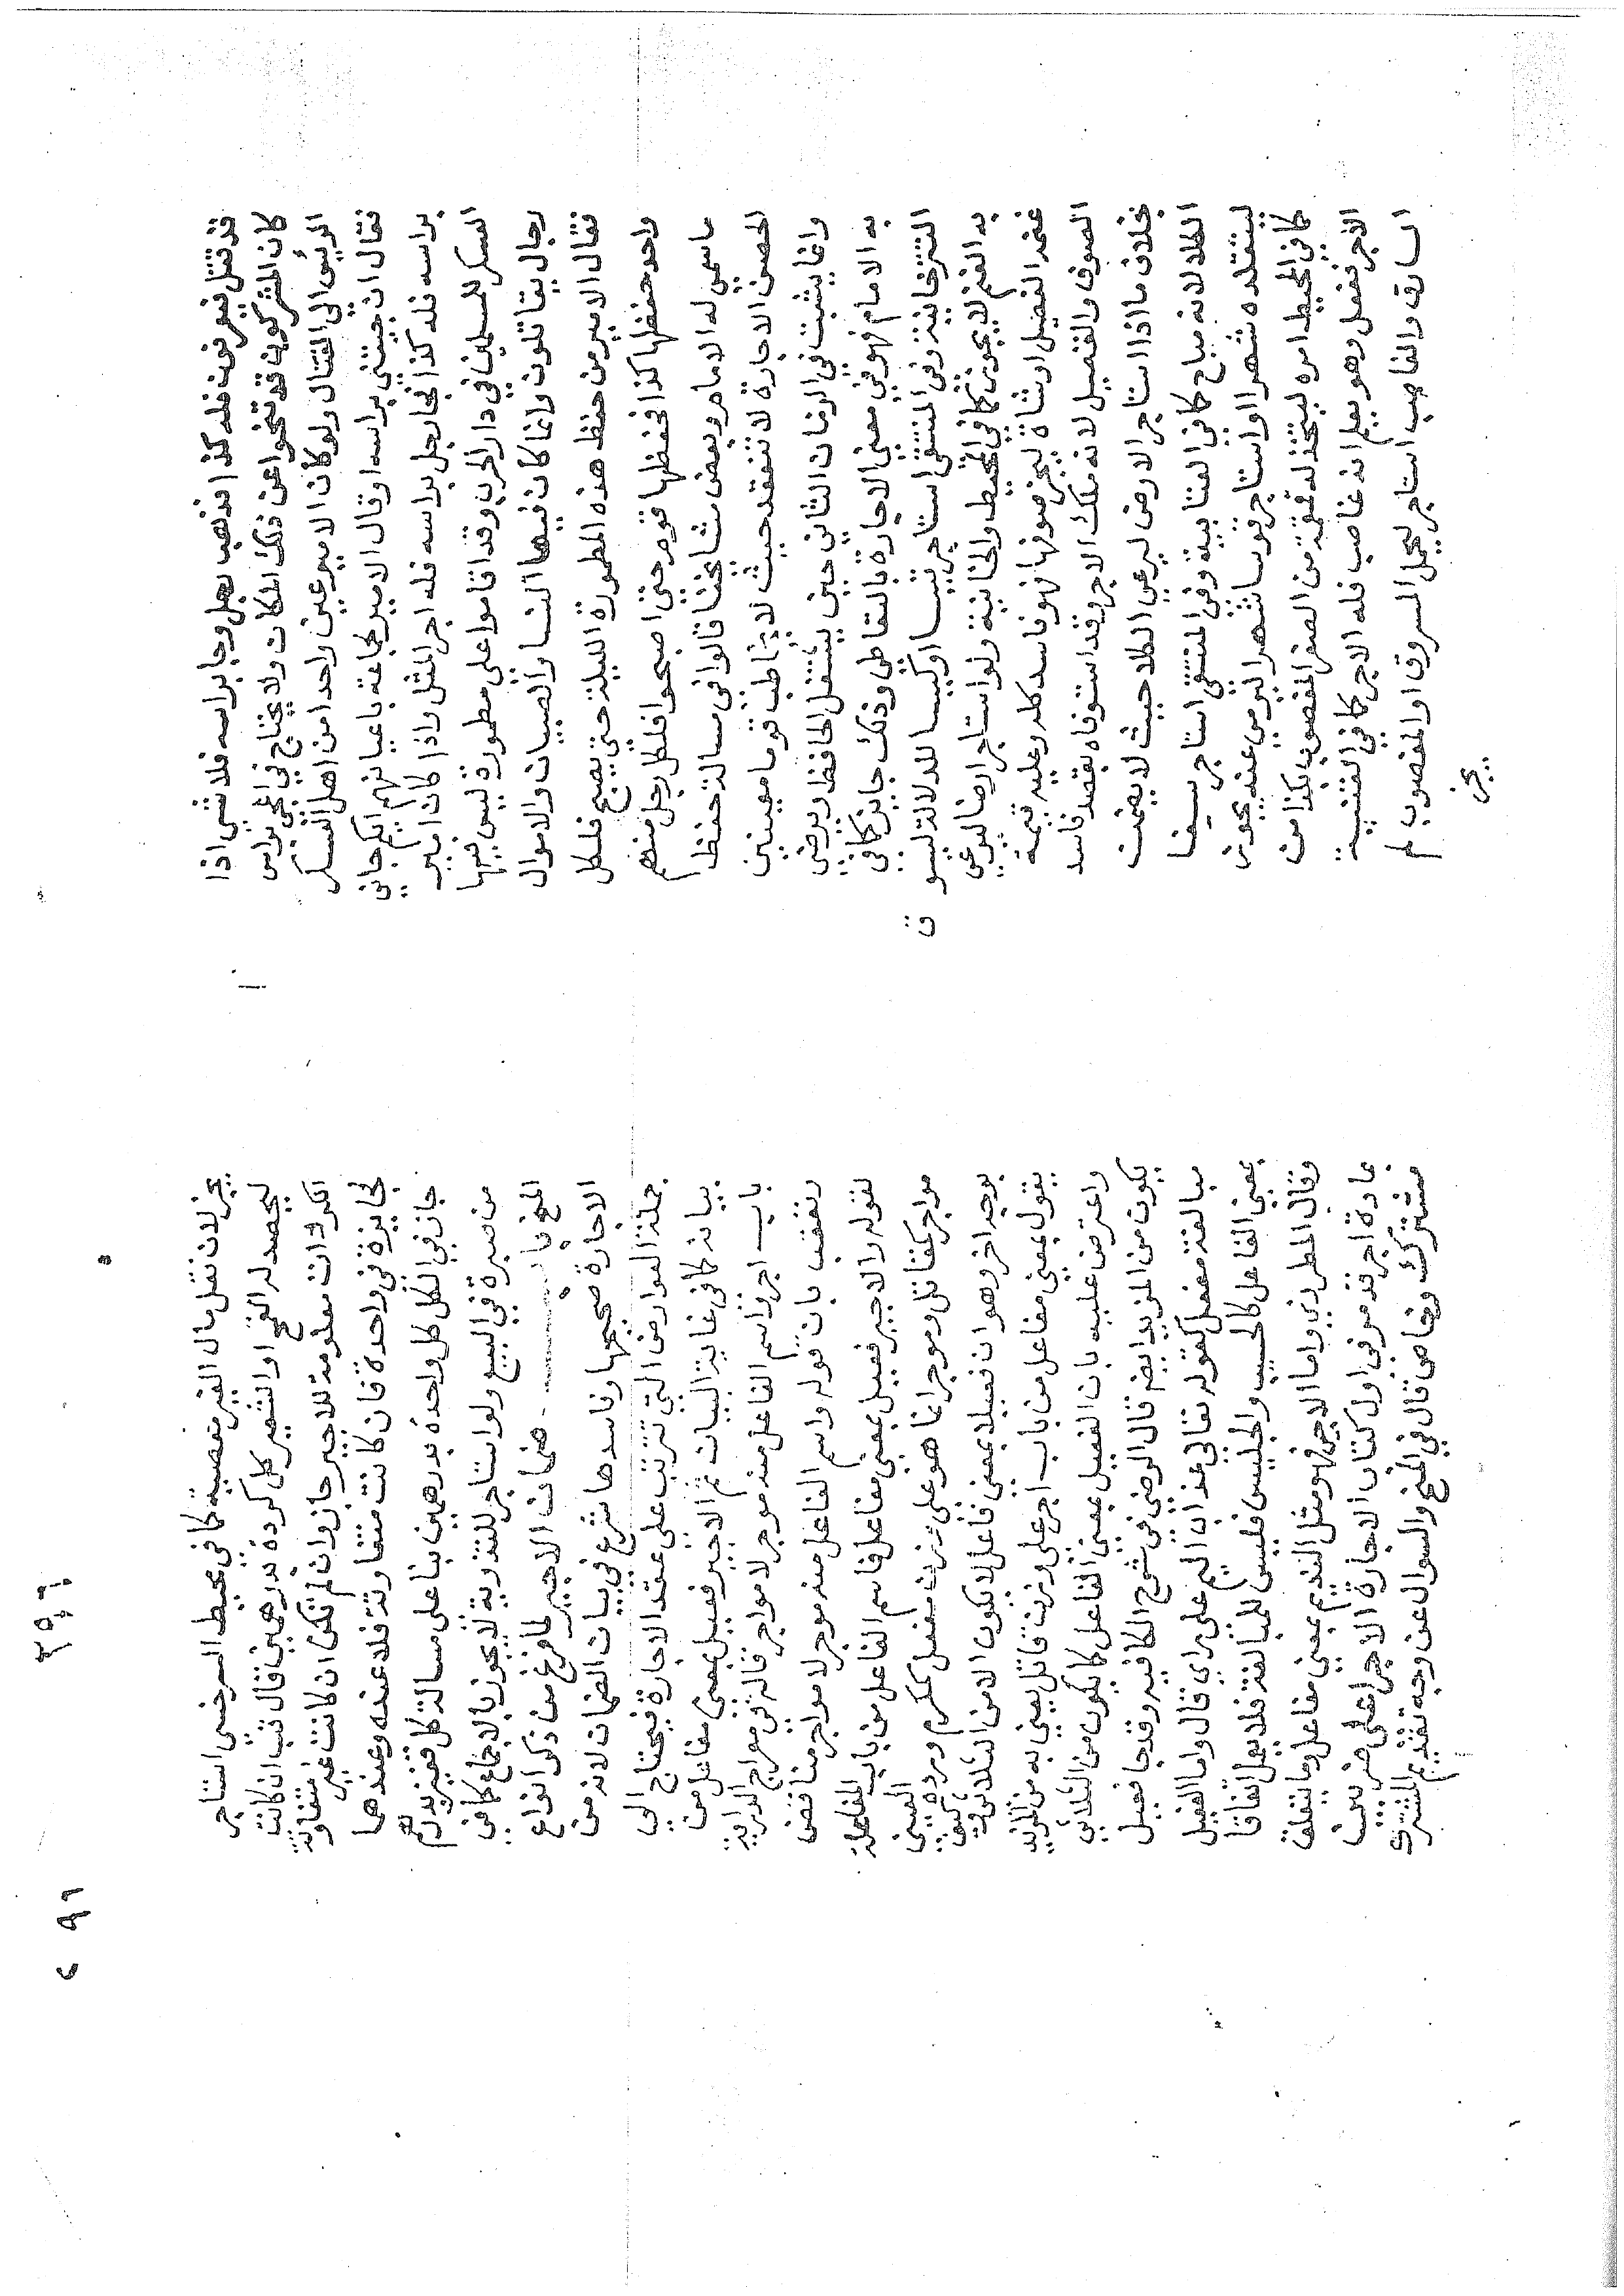 قد قتل فيعرف فله كذا فذهب رجل وجا براسه فلا شي اذا
كان المشركون قد تنحوا عن ذلك المكان ولا يحتاج في المجي براس
الرئيس الي القتال ولو كان الامير عين واحدا من اهل العسكر
فقال ان جيتني براسه اوقال الامير لجماعة باعيانهم ايكم جاني
براسه فله كذا فجا رجل براسه فله اجر المثل واذا كان امير
العسكر للمسلمين في دار الحرب وقد اقاموا علي مطمورة ليس فيها
رجال يقاتلون وانما كان فيها النسا والصبيان والاموال
فقال الامير من حفظ هذه المطمورة الليلة حتي يصبح فلكل
واحد حفظها كذا فحفظها قوم حتي اصبحوا فلكل رجل منهم
ماسمي له الامام وبعض مشايخنا قالوا في مسالة حفظ
الحصن الاجارة لا تنعقد حيث لا يخاطب قوما معينين
وانما يثبت في الزمان الثاني حين يشتغل الحافظ ويرضي
به الامام فهو في معني الاجارة بالتعاطي وذلك جايز كما في
التترخانية وفي المنتقي استاجر تيسا او كبسا للدلالة ليسو
ق
به الغنم لا يجوز كما في المحيط والخانية ولو استاجر ارضا ليرعي
غنمه الفصيل او شاة ليجز صوفها فهو فاسد كله وعليه قيمة
الصوف والفصيل لانه ملك الاجر وقد استوفاه بعقد فاسد
بخلاف ما اذا استاجر الارض ليرعي الكلا حيث لا يضمن
الكلا لانه مباح كما في العتابية وفي المنتقي استاجر سيفا
ليتقلده شهرا او استاجر قوسا شهرا ليرمي عنه يجوز
كما في المحيط امره ليتخذ له قمقمة من الصفر المغصوب بكذا من
الاجر ففعل وهو يعلم انه غاصب فله الاجر كما في القنية
السارق والغاصب استاجر ليحمل المسروق او المغصوب لم
يجز
٢٩٦
يجز لان نقل مال الغير معصية كما في محيط السرخسي استاجر
ليحصد له القمح او الشعير كل كردة بدرهمين قال تب ان كانت
الكردات معلومة للاجير جاز وان لم تكن ان كانت غير متفاوتة
فجايزة في واحدة فان كانت متفاوتة فلا عنده وعندهما
جاز في الكل كل واحدة بدرهمين بنا علي مسالة كل قفيز بدرهم
من صبرة في البيع ولو استاجر للتذرية لا يجوز بالاجماع كما في
المنح باب ضمان الاجير لما فرغ من ذكر انواع
الاجارة صحيحها وفاسدها شرع في بيان الضمان لانه من
جملة العوارض التي تترتب علي عقد الاجارة فيحتاج الي
بيانه كما في غاية البيان ثم الاجير فعيل بمعني مفاعل من
باب اجر واسم الفاعل منه موجر لا مواجر قاله في معراج الدراية
وتعقب بان قوله واسم الفاعل منه موجر لا مواجر مناقض
لقوله والاجير فعيل بمعني مفاعل فاسم الفاعل من باب المفاعلة
مواجر كمقاتل وموجر انما هو علي وزن مفعل كمكرم ورده العيني
بوجه اخر وهو ان فعيلا بمعني فاعل لا يكون الا من الثلاثي وكيف
يقول بمعني مفاعل من باب اجر علي وزن قاتل يعني به من المزيد
واعترض عليه بان الفعيل بمعني الفاعل كما يكون من الثلاثي
يكون من المزيد ايض قال الرضي في شرح الكافية وقد جا فعيل
مبالغة مفعل كقوله تعالي عذاب اليم علي راي قال واما الفعيل
بمعني الفاعل كالحسيب والجليس فليس للمبالغة فلا يعمل اتفاقا
وقال المطرزي واما الاجير فهو مثل النديم بمعني مفاعل وما يتعلق
عادة اجر قد مر في اول كتاب الاجارة الاجير علي ضربين
مشترك وخاص قال في المنح والسوال عن وجه تقديم المشترك
٢٩٦